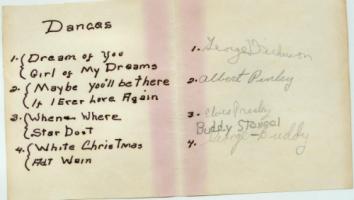 Dances
1. { Dream of You
Girl of My Dreams
2. { Maybe you'll be there
If I Ever Love Again
3. { When & Where
Star Dust
4. { White Christmas
1. George
2. Albert
3. Elvis Presley
Buddy
4. George - Buddy